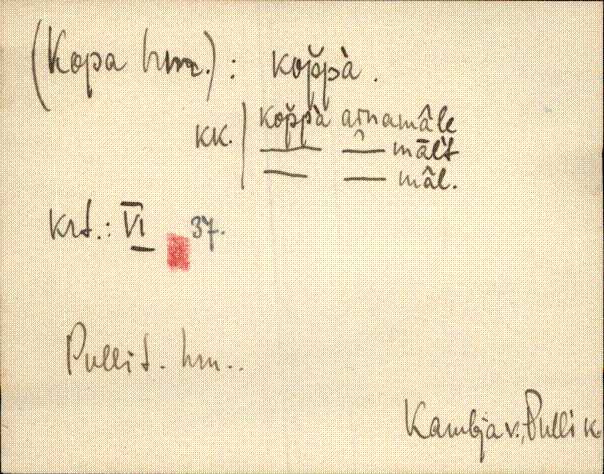 (Kopa hm.): kop̆pà.
KK. kop̆pà ainamâle
— — mālt
— — mâl.
Krt.: VI 37.
Pulli t. hm..
Kambja v., Pulli k.